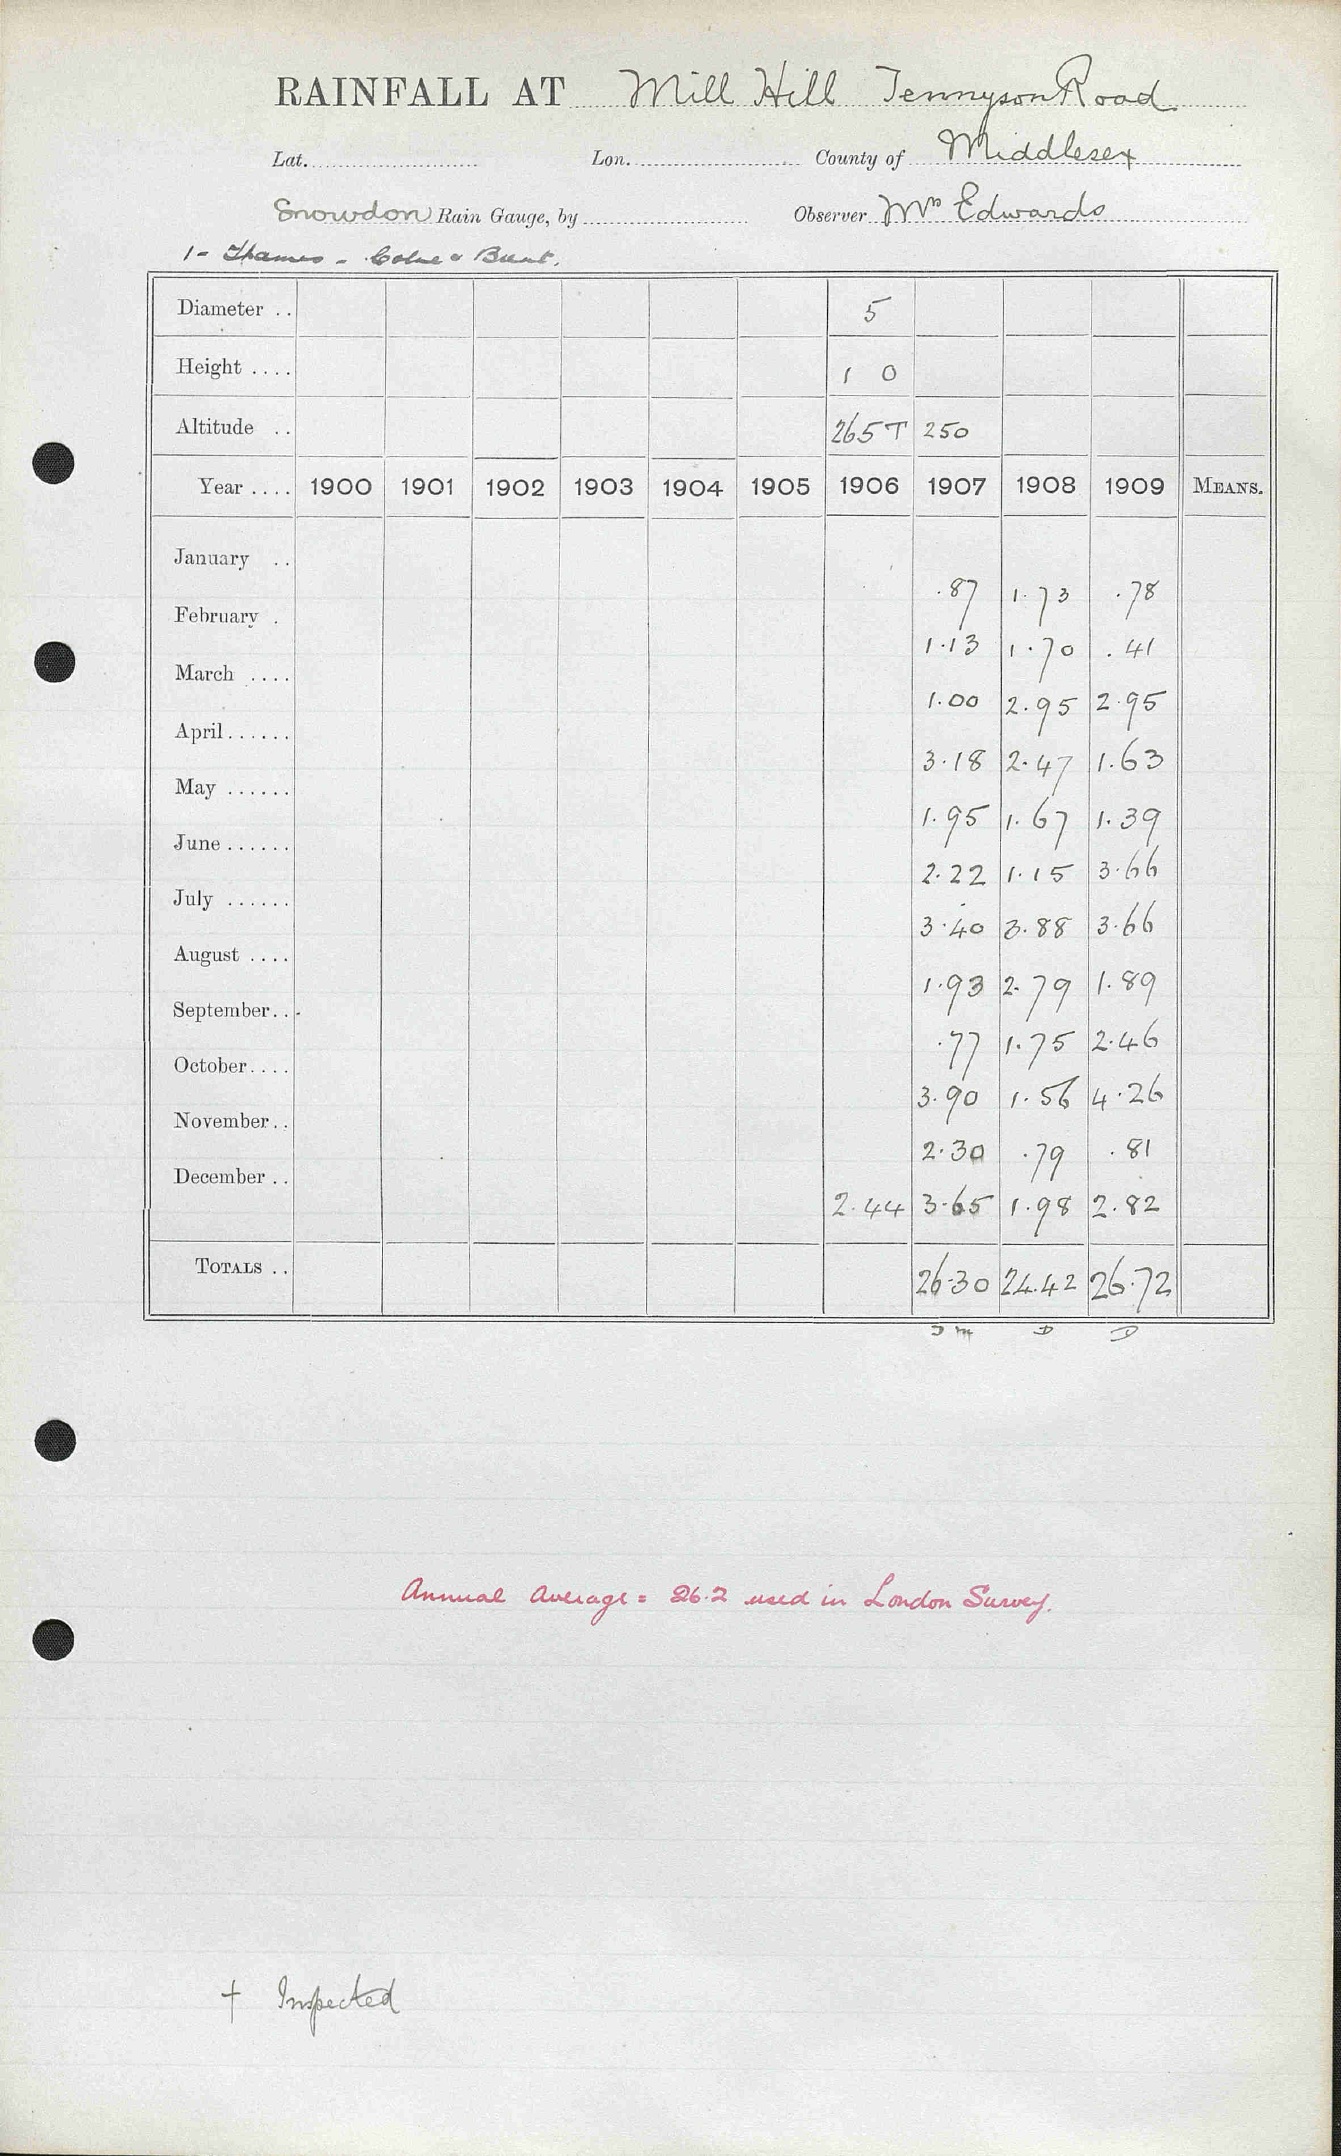 RAINFALL AT Mill Hill Tennyson Road
Lat. Lon. County of Middlesex
Snowdon Rain Gauge, by Observer Mrs Edwards
1 - Thames - Colne & Brent.
Diameter .. 5
Height .... 1 0
Altitude .. 265 T 250
Year .... 1900 1901 1902 1903 1904 1905 1906 1907 1908 1909 MEANS.
January ..
.87 1.73 .78
February .
1.13 1.70 .41
March ....
1.00 2.95 2.95
April......
3.18 2.47 1.63
May ......
1.95 1.67 1.39
June ......
2.22 1.15 3.66
July ......
3.40 3.88 3.66
August ....
1.93 2.79 1.89
September..
.77 1.75 2.46
October....
3.90 1.56 4.26
November..
2.30 .79 .81
December ..
2.44 3.65 1.98 2.82
TOTALS .. 26.30 24.42 26.72
D D
Annual Average = 26.2 used in London Survey.
† Inspected